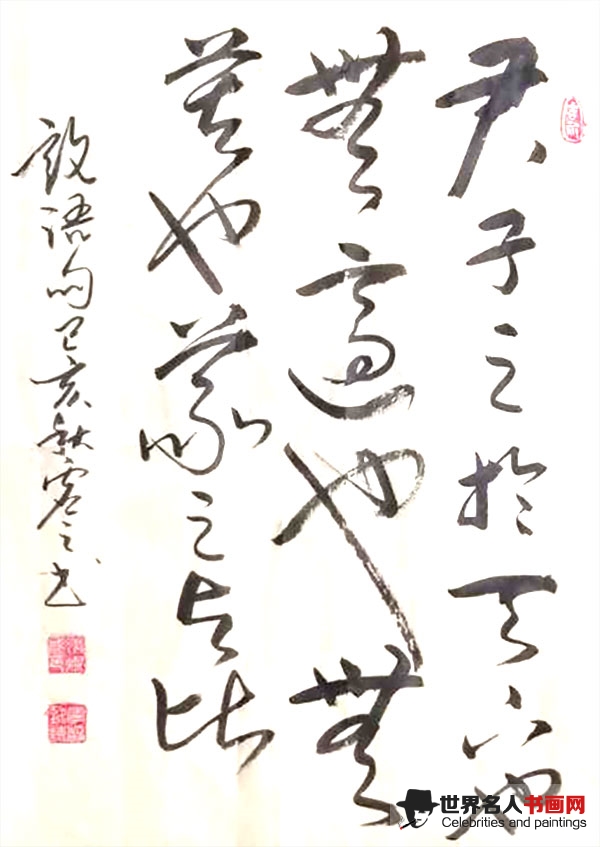 君子之於天下也
無適也無
莫也義之与比
語句己亥秋之书
世界名人书画网
Celebrities and paintings